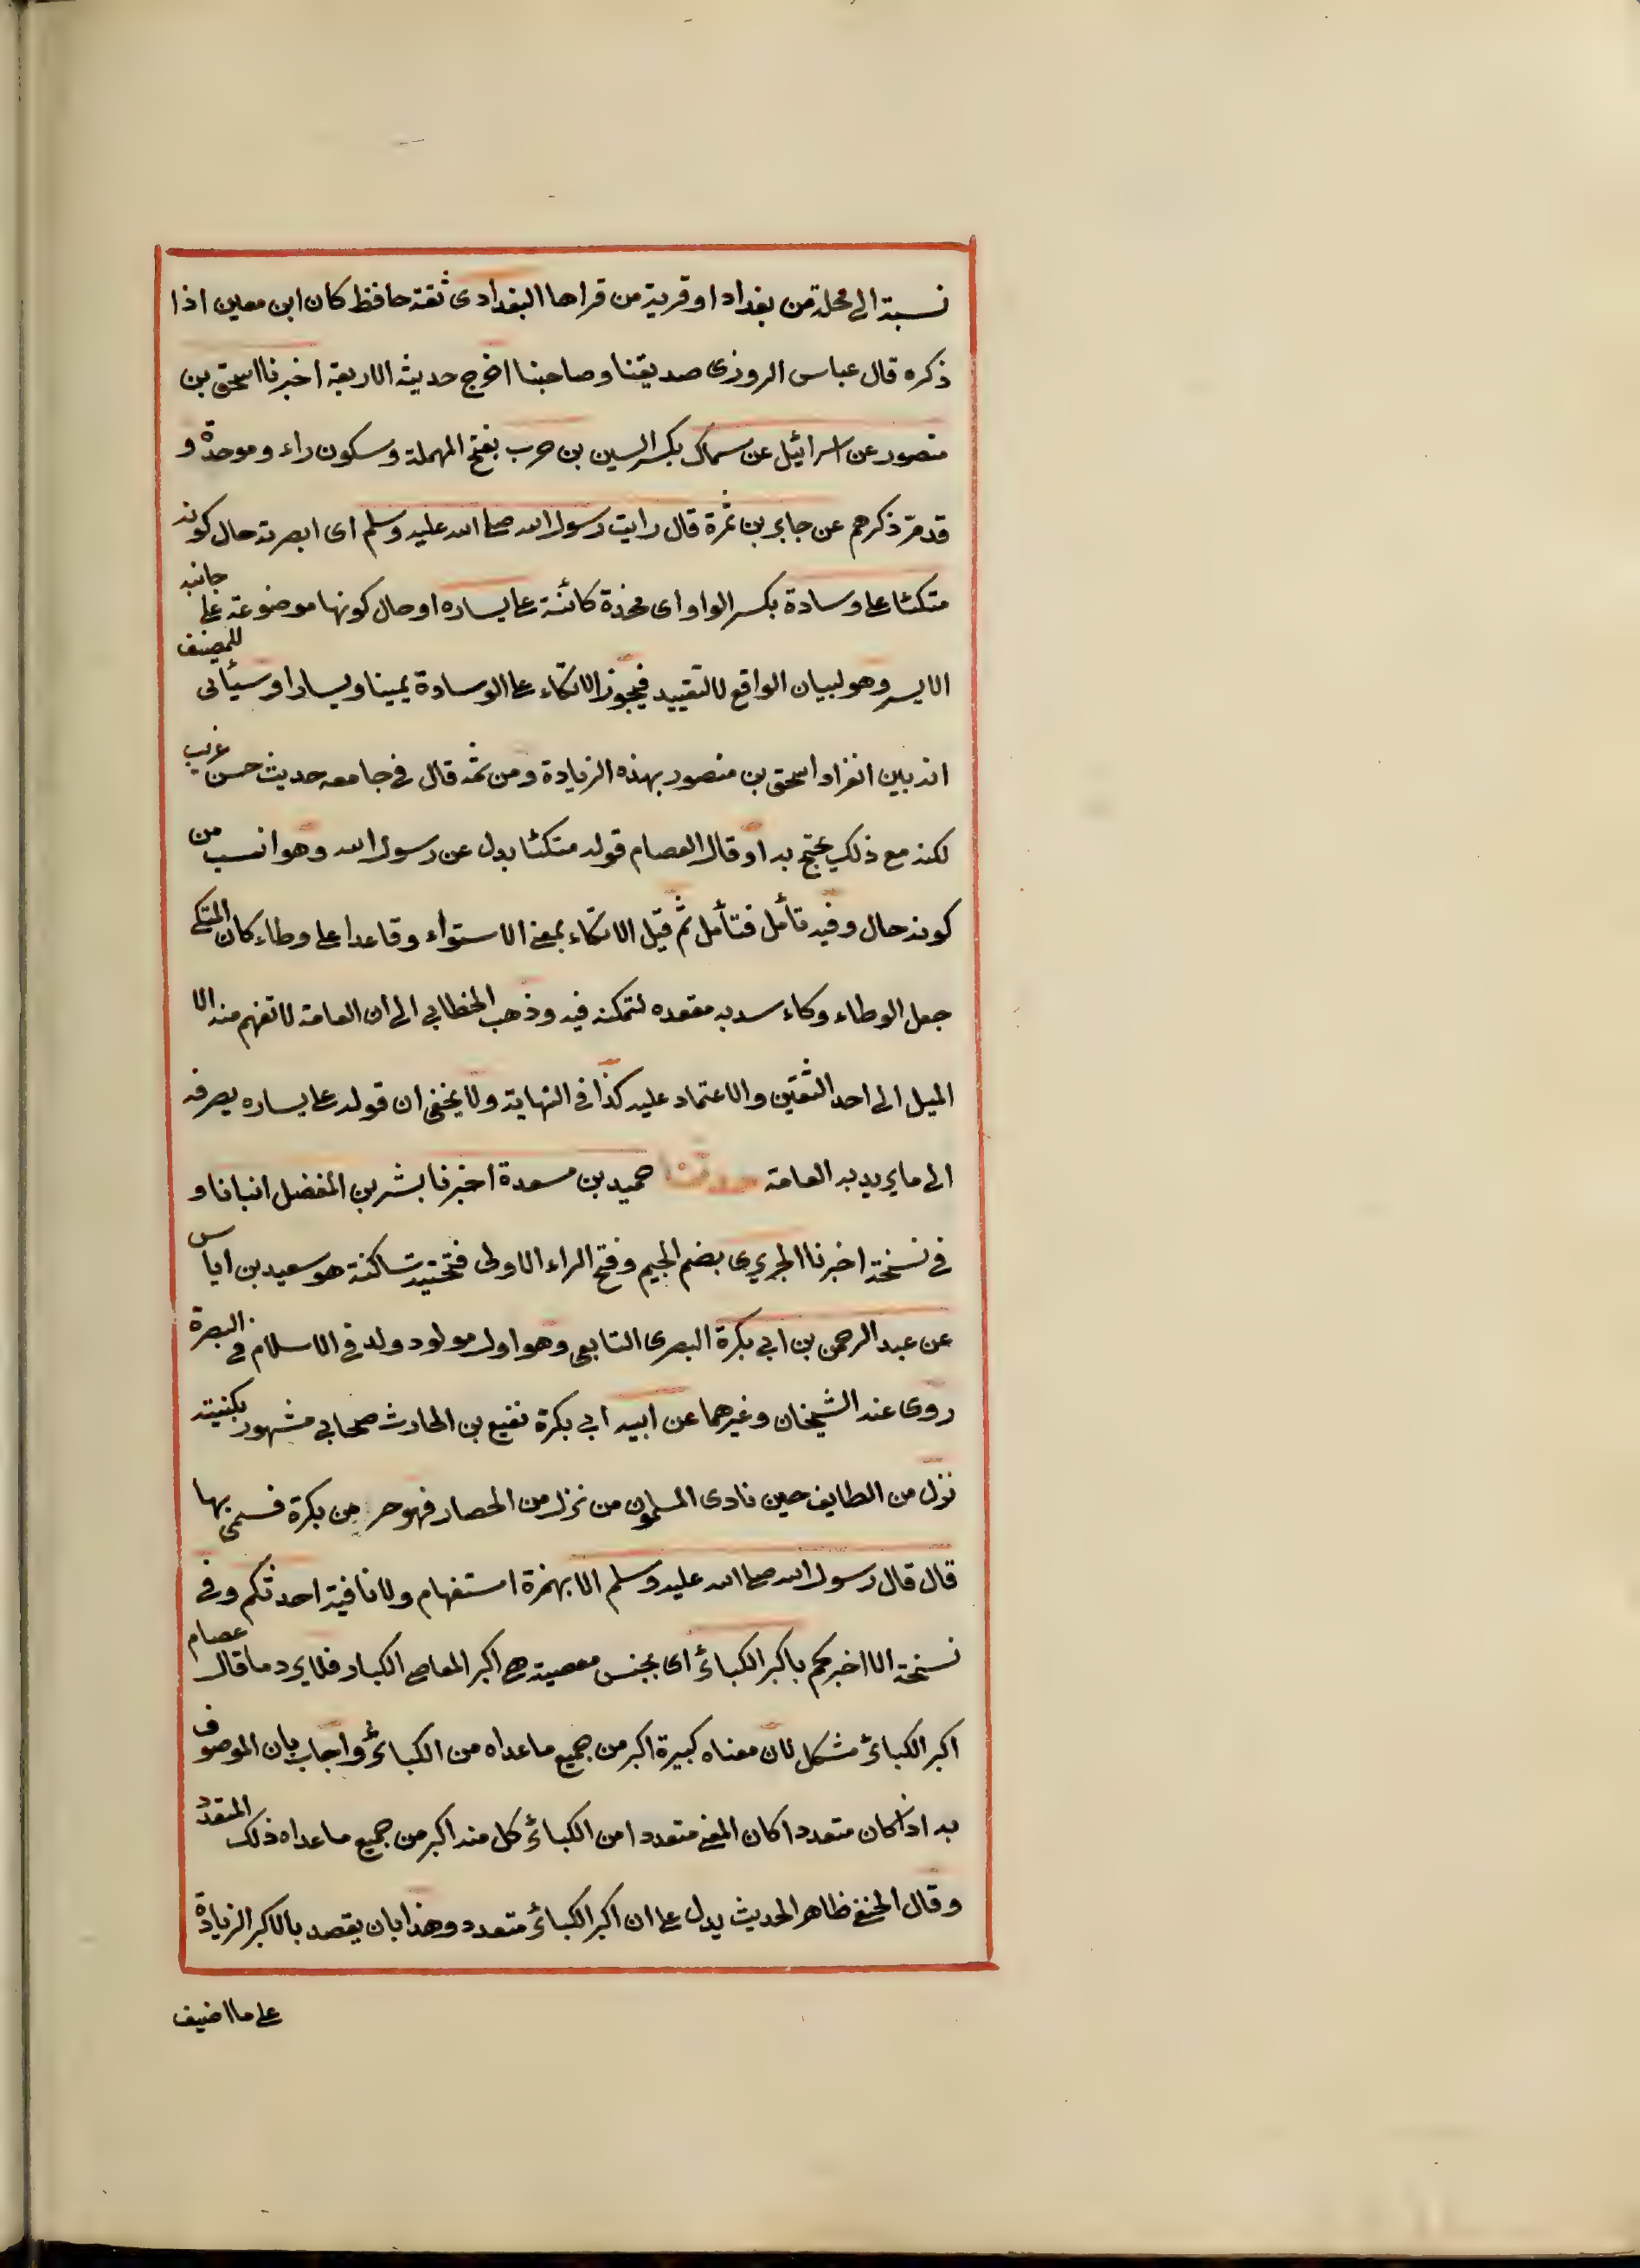 نسبة الى محلة من بغداد او قرية من قراها البغدادى ثقة حافظ كان ابن معين اذا
ذكره قال عباس الدوزى صديقنا وصاحبنا اخرج حديثه الاربعة اخبرنا اسحق بن
منصور عن اسرائيل عن سماك بكسر السين بن حرب بفتح المهملة وسكون راء وموحدة و
قد مرّ ذكرهم عن جابر بن ثمرة قال رايت رسول الله صلى الله عليه وسلم اى ابصرته حال كونه
متكئا على وسادة بكسر الواو اى مخدة كائنة على يساره او حال كونها موضوعة على جانبه
الايسر وهو لبيان الواقع لا لتقييد فيجوز الاتكاء على الوسادة يمينا ويسارا وسيأتى للمصنف
انه بين انفراد اسحق بن منصور بهذه الزيادة ومن ثمه قال فى جامعه حديث حسن غريب
لكنه مع ذلك يحتج به او قال العصام قوله متكئا بدل عن رسول الله وهو انسب من
كونه حال وفيه تأمل فتأمل ثم قيل الاتكاء بمعنى الاستواء وقاعدا على وطاء كان المتكى
جعل الوطاء وكاء سد به مقعده لتمكنه فيه وذهب الخطابي الى ان العامة لا تفهم منه الا
الميل الى احد الشقين والاعتماد عليه كذا فى النهاية ولا يخفى ان قوله على يساره يصرفه
الى ما يريد به العامة حدثنا حميد بن مسعدة اخبرنا بشر بن المفضل انبانا و
فى نسخة اخبرنا الجريرى بضم الجيم وفتح الراء الاولى فتحتية ساكنة هو سعيد بن اياس
عن عبد الرحمن بن ابي بكرة البصرى التابعى وهو اول مولود ولد فى الاسلام فى البصرة
روى عند الشيخان وغيرهما عن ابيه ابي بكرة نفيع بن الحارث صحابي مشهور بكنيته
نزل من الطايف حين نادى المسلمون من نزل من الحصار فهو حر من بكرة فسمى بها
قال قال رسول الله صلى الله عليه وسلم الا بهمزة استفهام ولا نافية احدثكم وفى
نسخة الا اخبركم باكبر الكبائر اى بجنس معصية هى اكبر المعاصى الكبار فلا يرد ما قال عصام
اكبر الكبائر مشكل لان معناه كبيرة اكبر من جميع ما عداه من الكبائر واجاب بان الموصوف
به اذا كان متعددا كان المعنى متعددا من الكبائر كل منه اكبر من جميع ما عداه ذلك المتعدد
وقال الحنفى ظاهر الحديث يدل على ان اكبر الكبائر متعدد وهذا بان يقصد بالاكبر الزيادة
على ما اضيف